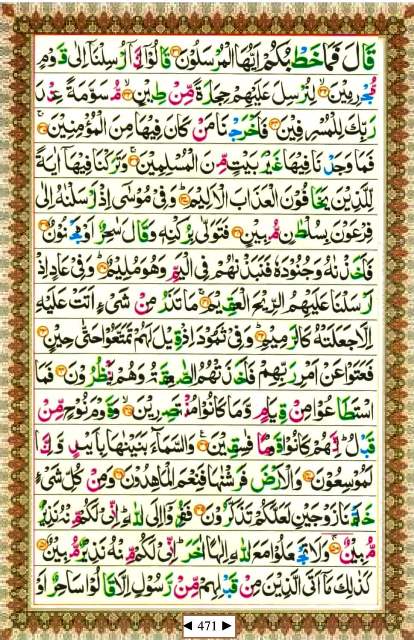 قَالَ فَمَا خَطْبُكُمْ اَيُّهَا الْمُرْسَلُوْنَ ۝ قَالُوْۤا اِنَّاۤ اُرْسِلْنَاۤ اِلٰى قَوْمٍ
مُّجْرِمِيْنَ ۝ لِنُرْسِلَ عَلَيْهِمْ حِجَارَةً مِّنْ طِيْنٍ ۝ مُّسَوَّمَةً عِنْدَ
رَبِّكَ لِلْمُسْرِفِيْنَ ۝ فَاَخْرَجْنَا مَنْ كَانَ فِيْهَا مِنَ الْمُؤْمِنِيْنَ ۝
فَمَا وَجَدْنَا فِيْهَا غَيْرَ بَيْتٍ مِّنَ الْمُسْلِمِيْنَ ۝ وَتَرَكْنَا فِيْهَاۤ اٰيَةً
لِّلَّذِيْنَ يَخَافُوْنَ الْعَذَابَ الْاَلِيْمَ ۝ وَفِيْ مُوْسٰۤى اِذْ اَرْسَلْنٰهُ اِلٰى
فِرْعَوْنَ بِسُلْطٰنٍ مُّبِيْنٍ ۝ فَتَوَلّٰى بِرُكْنِهٖ وَقَالَ سٰحِرٌ اَوْ مَجْنُوْنٌ ۝
فَاَخَذْنٰهُ وَجُنُوْدَهٗ فَنَبَذْنٰهُمْ فِي الْيَمِّ وَهُوَ مُلِيْمٌ ۝ وَفِيْ عَادٍ اِذْ
اَرْسَلْنَا عَلَيْهِمُ الرِّيْحَ الْعَقِيْمَ ۝ مَا تَذَرُ مِنْ شَيْءٍ اَتَتْ عَلَيْهِ
اِلَّا جَعَلَتْهُ كَالرَّمِيْمِ ۝ وَفِيْ ثَمُوْدَ اِذْ قِيْلَ لَهُمْ تَمَتَّعُوْا حَتّٰى حِيْنٍ ۝
فَعَتَوْا عَنْ اَمْرِ رَبِّهِمْ فَاَخَذَتْهُمُ الصّٰعِقَةُ وَهُمْ يَنْظُرُوْنَ ۝ فَمَا
اسْتَطَاعُوْا مِنْ قِيَامٍ وَّمَا كَانُوْا مُنْتَصِرِيْنَ ۝ وَقَوْمَ نُوْحٍ مِّنْ
قَبْلُ ؕ اِنَّهُمْ كَانُوْا قَوْمًا فٰسِقِيْنَ ۝ وَالسَّمَآءَ بَنَيْنٰهَا بِاَيْىدٍ وَّاِنَّا
لَمُوْسِعُوْنَ ۝ وَالْاَرْضَ فَرَشْنٰهَا فَنِعْمَ الْمَاهِدُوْنَ ۝ وَمِنْ كُلِّ شَيْءٍ
خَلَقْنَا زَوْجَيْنِ لَعَلَّكُمْ تَذَكَّرُوْنَ ۝ فَفِرُّوْۤا اِلَى اللّٰهِ ؕ اِنِّيْ لَكُمْ مِّنْهُ نَذِيْرٌ
مُّبِيْنٌ ۝ وَلَا تَجْعَلُوْا مَعَ اللّٰهِ اِلٰهًا اٰخَرَ ؕ اِنِّيْ لَكُمْ مِّنْهُ نَذِيْرٌ مُّبِيْنٌ ۝
كَذٰلِكَ مَاۤ اَتَى الَّذِيْنَ مِنْ قَبْلِهِمْ مِّنْ رَّسُوْلٍ اِلَّا قَالُوْا سَاحِرٌ اَوْ
◄ 471 ►